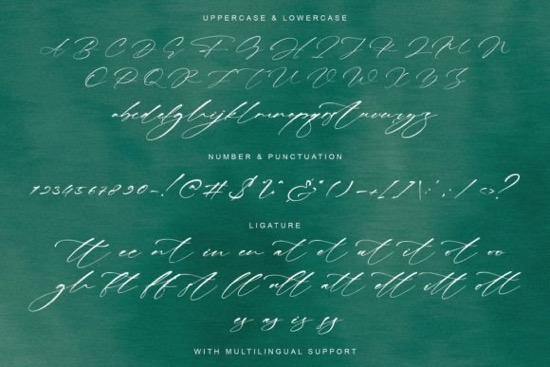 UPPERCASE & LOWERCASE
A B C D E F G H I J K L M N
O P Q R S T U V W X Y Z
abcdefghijklmnopqrstuvwxyz
NUMBER & PUNCTUATION
LIGATURE
tt ee nt in en at et ut it ot oo
gh ft ff st ll ult att ett itt ott
es as is ys
WITH MULTILINGUAL SUPPORT